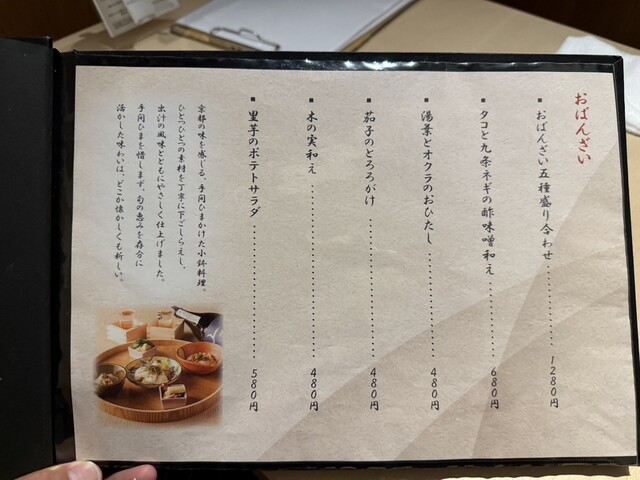 おばんざい
■ おばんざい五種盛り合わせ……………………1280円
■ タコと九条ネギの酢味噌和え……………………680円
■ 湯葉とオクラのおひたし……………………480円
■ 茄子のとろろがけ……………………480円
■ 木の実和え……………………480円
■ 里芋のポテトサラダ……………………580円
京都の味を感じる、手間ひまかけた小鉢料理。
ひとつひとつの素材を丁寧に下ごしらえし、
出汁の風味とともにやさしく仕上げました。
手間ひまを惜しまず、旬の恵みを存分に
活かした味わいは、どこか懐かしくも新しい。